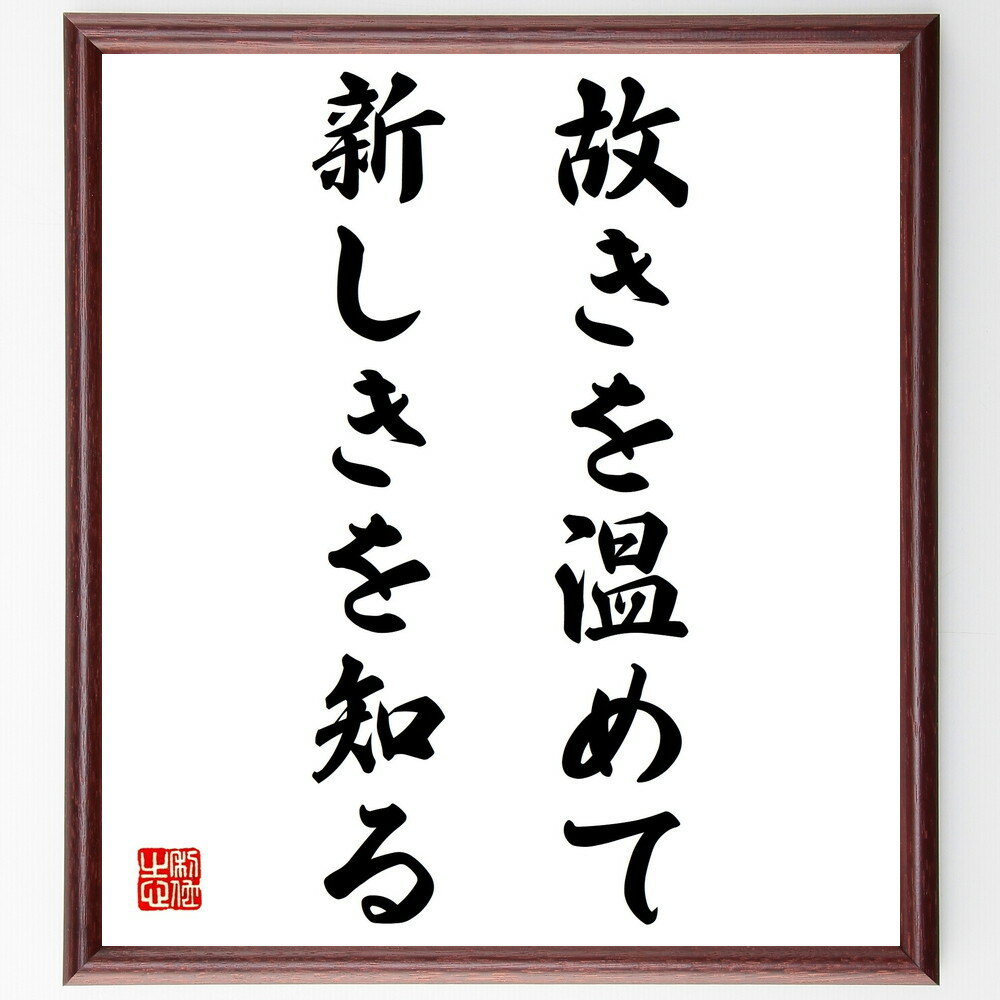 故きを温めて
新しきを知る